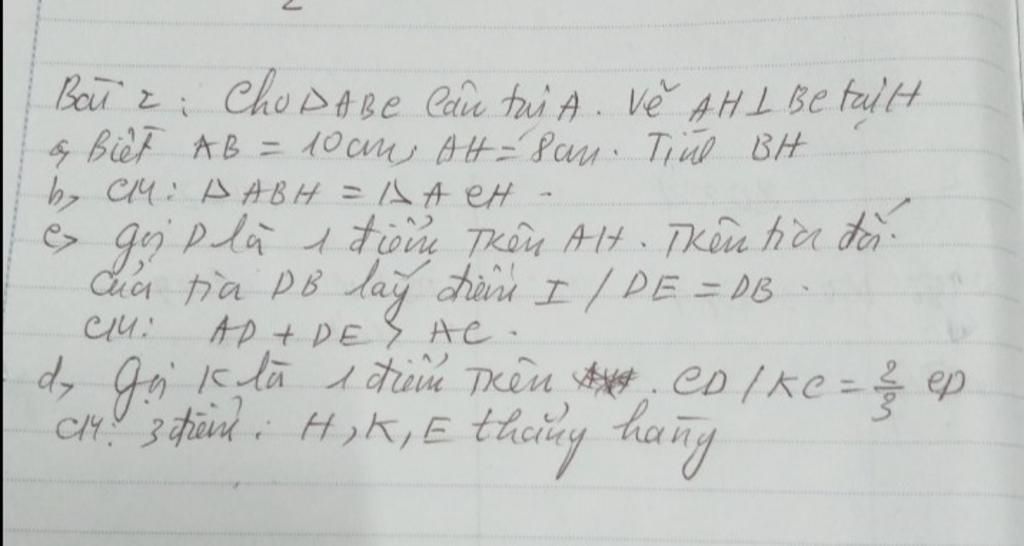 Bài 2 : Cho △ABC Cân tại A. Vẽ AH⊥BC tại H
a, Biết AB = 10cm, AH = 8cm. Tính BH
b, CM: △ABH = △ACH.
c, Gọi D là 1 điểm Trên AH. Trên tia đối
Của tia DB lấy điểm I / DE = DB.
CM: AD + DE > AC.
d, Gọi K là 1 điểm Trên CD / KC = 2/3 CD
CM: 3 điểm: H, K, E thẳng hàng